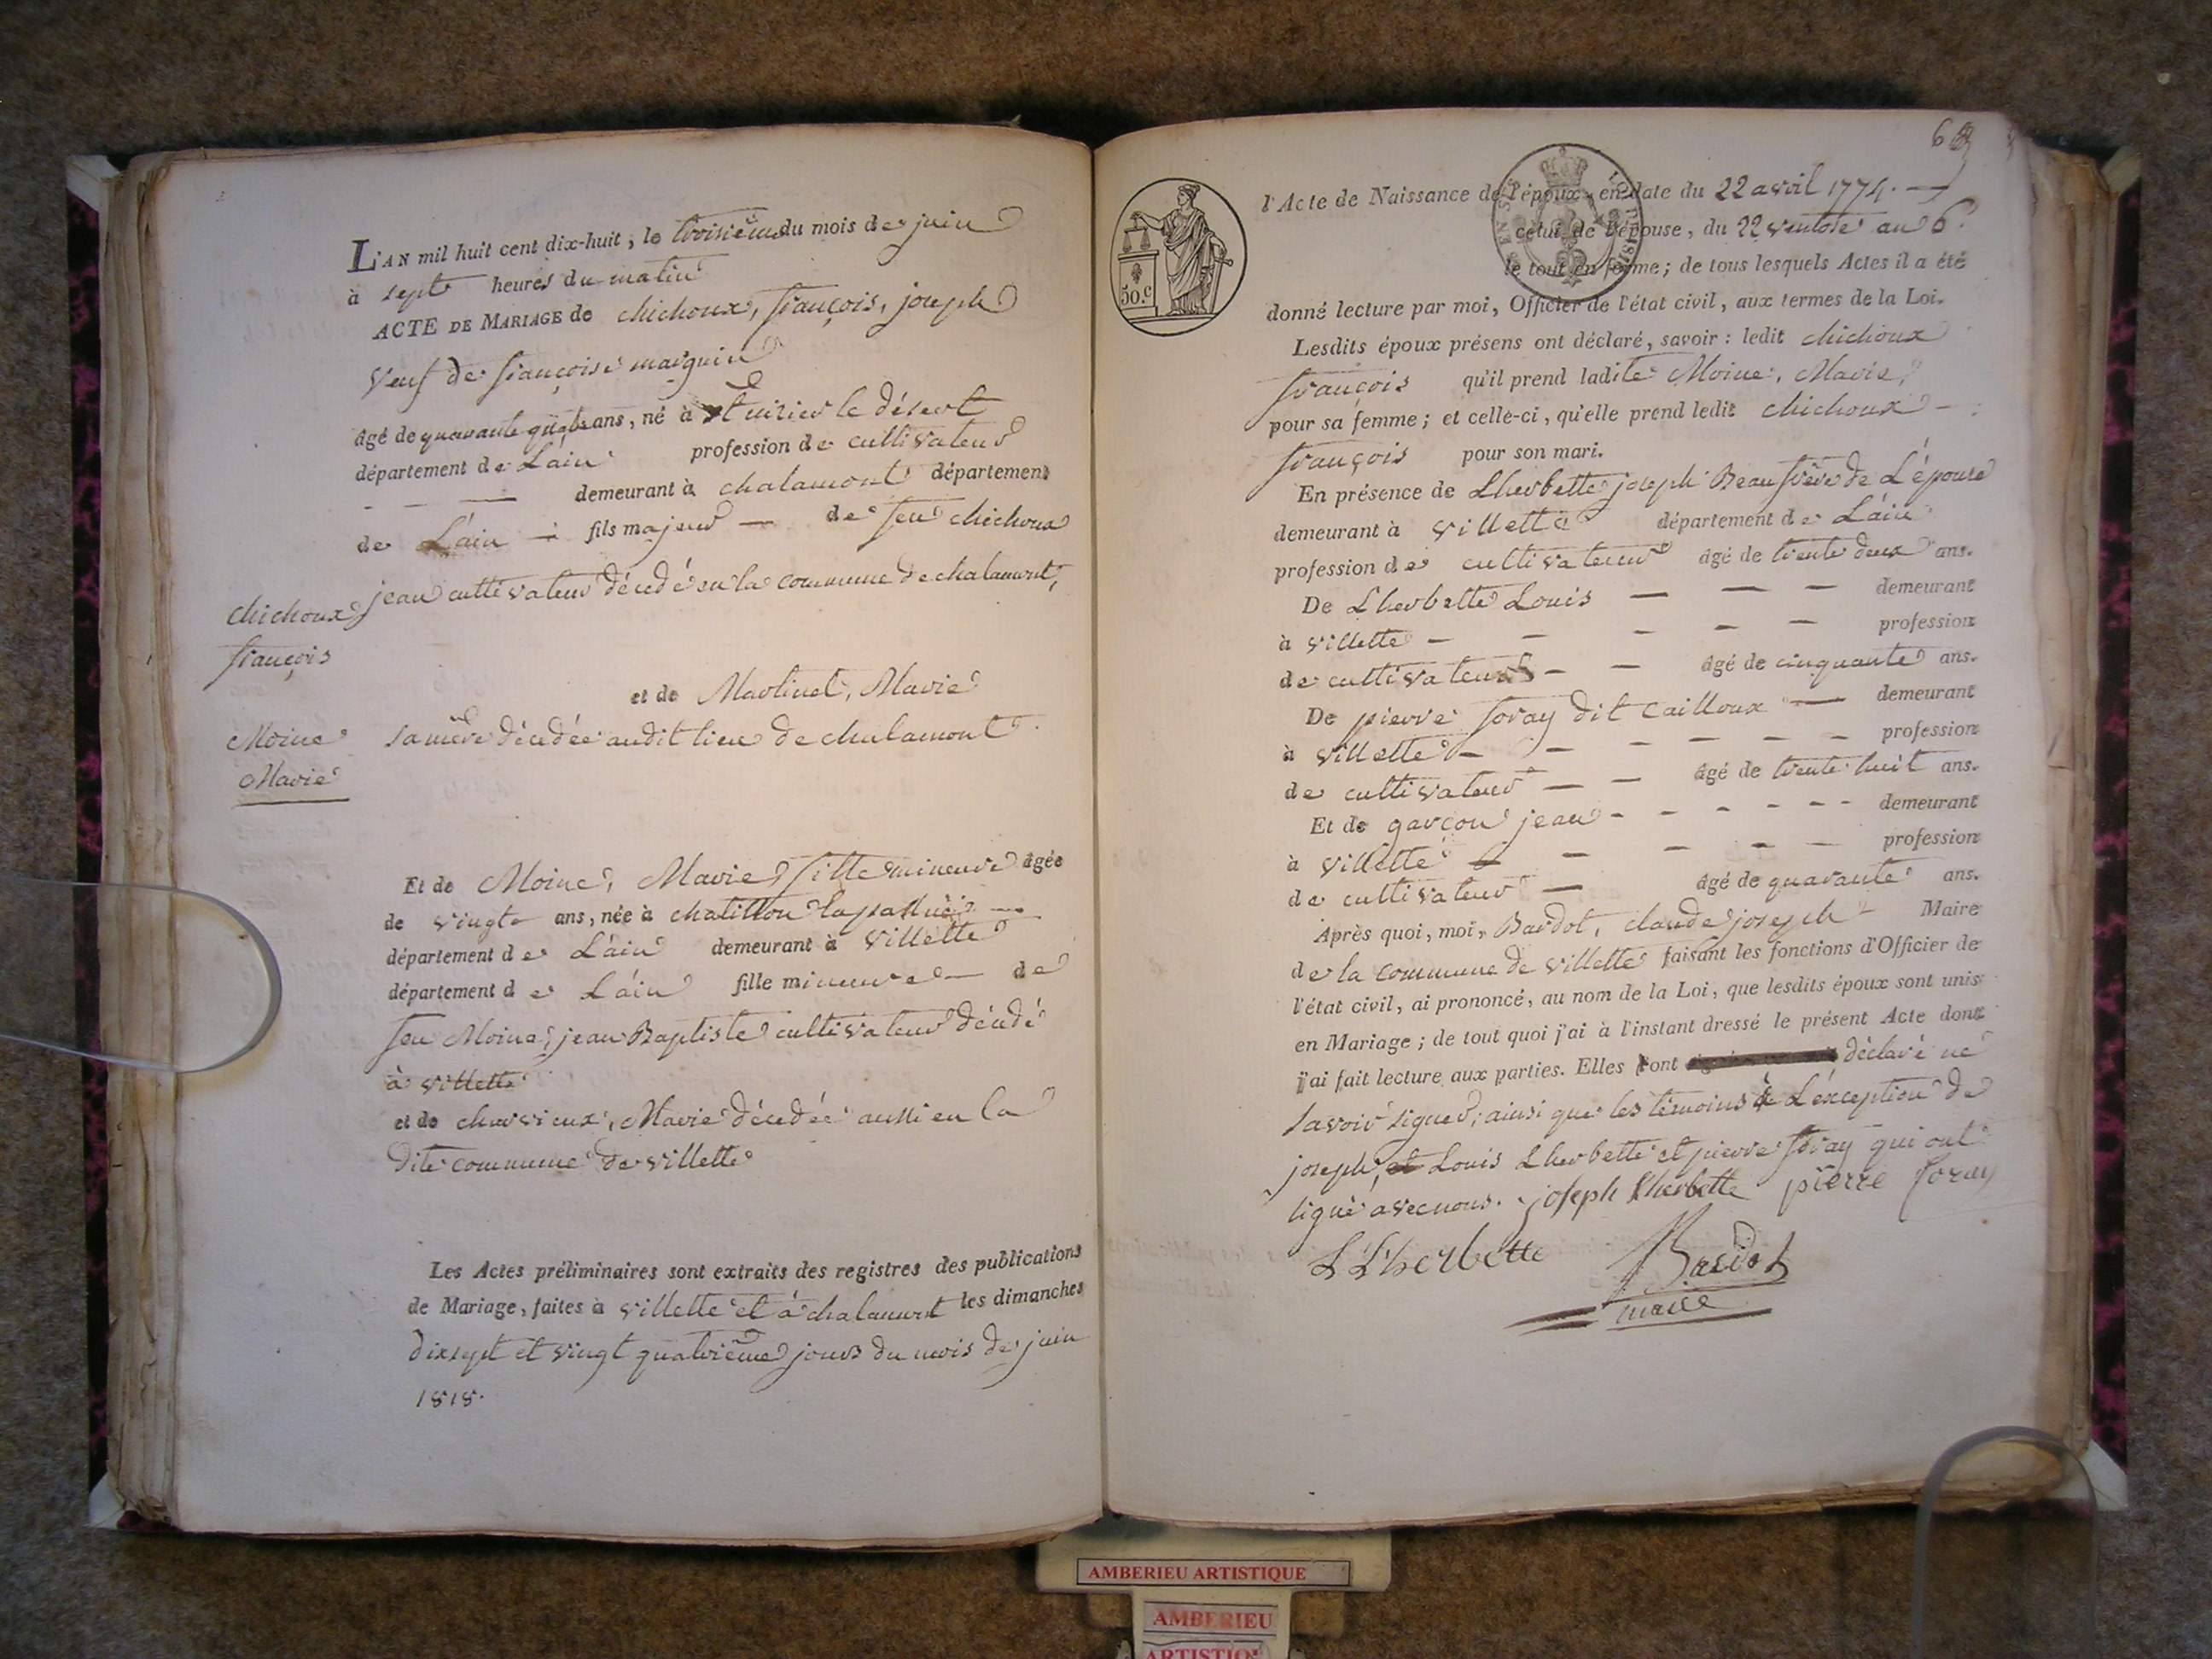 L'AN mil huit cent dix-huit, le troisième du mois de juin
à sept heures du matin
ACTE DE MARIAGE de chichoux, françois, joseph
veuf de françoise marguin
âgé de quarante quatre ans, né à st nizier le désert
département de L'ain profession de cultivateur
demeurant à chalamont département
de L'ain fils majeur de feu chichoux
jean cultivateur décédé en la commune de chalamont,
chichoux
françois
et de Martinet, Marie
Moine
Marie
sa mère décédée audit lieu de chalamont
Et de Moine, Marie, fille mineure âgée
de vingt ans, née à chatillon lapallud
département de L'ain demeurant à villette
département de L'ain fille mineure de
feu Moine, jean Baptiste cultivateur décédé
à villette
et de charvieux, Marie décédée aussi en la
dite commune de villette
Les Actes préliminaires sont extraits des registres des publications
de Mariage, faites à villette et à chalamont les dimanches
dixsept et vingt quatrième jours du mois de juin
1818.
6
50.c
l'Acte de Naissance de l'époux, en date du 22 avril 1774.
celui de l'épouse, du 22 ventose an 6.
le tout en forme; de tous lesquels Actes il a été
donné lecture par moi, Officier de l'état civil, aux termes de la Loi.
Lesdits époux présens ont déclaré, savoir: ledit chichoux
françois qu'il prend ladite Moine, Marie,
pour sa femme; et celle-ci, qu'elle prend ledit chichoux
françois pour son mari.
En présence de Lherbette joseph Beau frère de L'épouse
demeurant à villette département de L'ain
profession de cultivateur âgé de trente deux ans.
De Lherbette Louis demeurant
à villette profession
de cultivateur âgé de cinquante ans.
De pierre foray dit cailloux demeurant
à villette profession
de cultivateur âgé de trente huit ans.
Et de garçon jean demeurant
à villette profession
de cultivateur âgé de quarante ans.
Après quoi, moi, Bardot, claude joseph Maire
de la commune de villette faisant les fonctions d'Officier de
l'état civil, ai prononcé, au nom de la Loi, que lesdits époux sont unis
en Mariage; de tout quoi j'ai à l'instant dressé le présent Acte dont
j'ai fait lecture aux parties. Elles ont déclaré ne
savoir signer, ainsi que les témoins à L'exception de
joseph, et Louis Lherbette et pierre foray qui ont
signé avec nous. joseph Lherbette pierre foray
L Lherbette Bardot
maire
AMBERIEU ARTISTIQUE
AMBERIEU
ARTISTIQUE